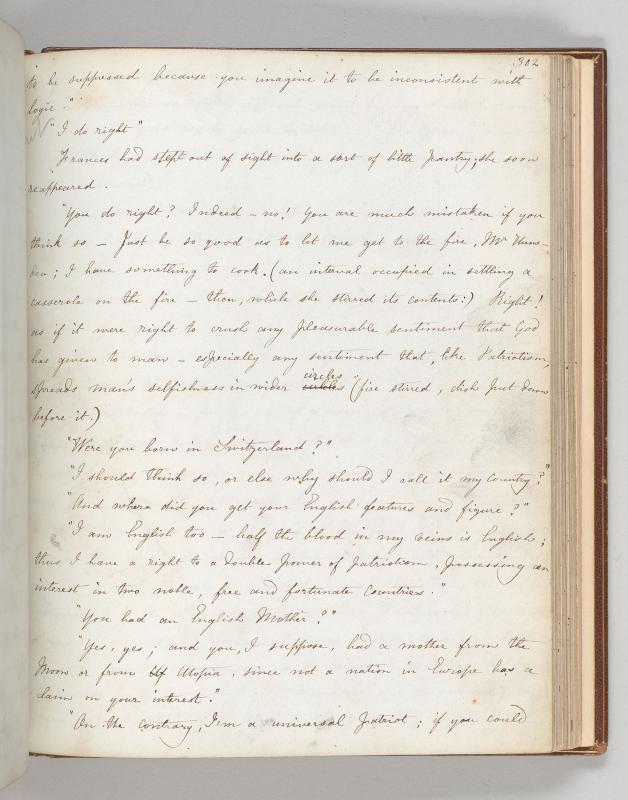 302
to be suppressed because you imagine it to be inconsistent with
logic."
"I do right"
Frances had stept out of sight into a sort of little pantry; she soon
reappeared.
"You do right? Indeed – no! You are much mistaken if you
think so – Just be so good as to let me get to the fire, Mr Huns-
den; I have something to cook. (an interval occupied in settling a
casserole on the fire – then, while she stirred its contents:) Right!
as if it were right to crush any pleasurable sentiment that God
has given to man – especially any sentiment that, like Patriotism,
spreads man's selfishness in wider circles" (fire stirred, dish put down
before it.)
"Were you born in Switzerland?"
"I should think so, or else why should I call it my country?"
"And where did you get your English features and figure?"
"I am English too – half the blood in my veins is English;
thus I have a right to a double power of patriotism, possessing an
interest in two noble, free and fortunate Countries."
"You had an English Mother?"
"Yes, yes; and you, I suppose, had a mother from the
Moon or from Utopia, since not a nation in Europe has a
claim on your interest."
"On the contrary, I'm a universal patriot; if you could